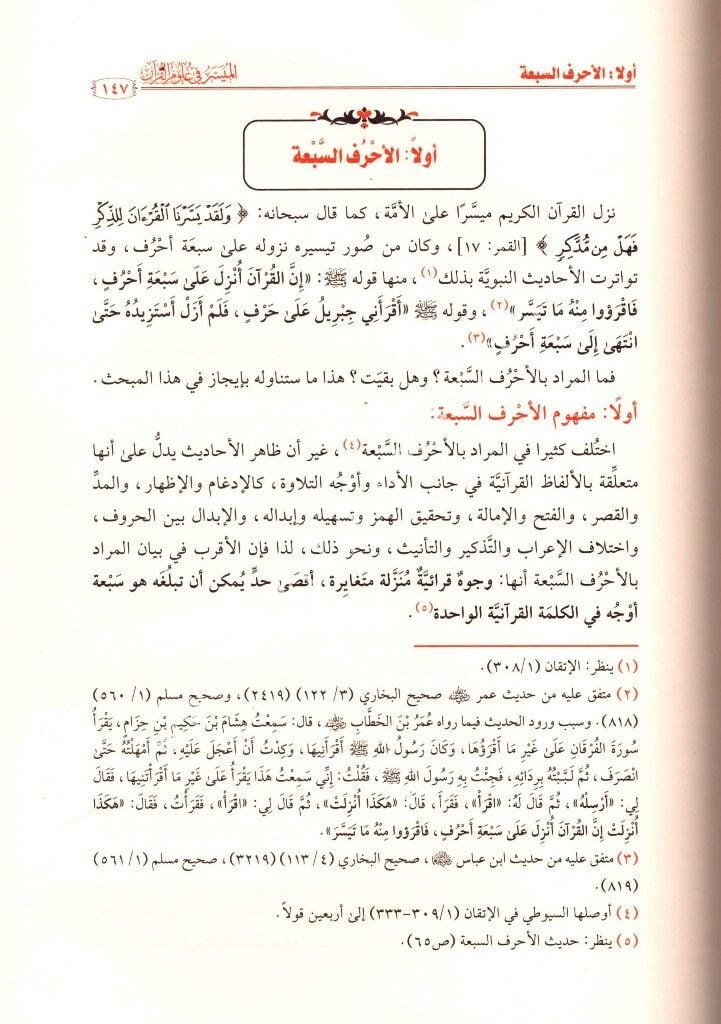 أولا: الأحرف السبعة
الميسر في علوم القرآن
١٤٧
أولاً: الأحْرُف السَّبْعة
نزل القرآن الكريم ميسَّرًا على الأمَّة، كما قال سبحانه: ﴿ وَلَقَدۡ يَسَّرۡنَا ٱلۡقُرۡءَانَ لِلذِّكۡرِ
فَهَلۡ مِن مُّدَّكِرٖ ﴾ [القمر: ١٧]، وكان من صُور تيسيره نزوله على سبعة أحْرُف، وقد
تواترت الأحاديث النبويَّة بذلك(١)، منها قوله ﷺ: «إِنَّ القُرْآنَ أُنْزِلَ عَلَى سَبْعَةِ أَحْرُفٍ،
فَاقْرَؤوا مِنْهُ مَا تَيَسَّر»(٢)، وقوله ﷺ «أَقْرَأَنِي جِبْرِيلُ عَلَى حَرْفٍ، فَلَمْ أَزَلْ أَسْتَزِيدُهُ حَتَّى
انْتَهَى إِلَى سَبْعَةِ أَحْرُفٍ»(٣).
فما المراد بالأحْرُف السَّبْعة؟ وهل بقيَت؟ هذا ما ستناوله بإيجاز في هذا المبحث.
أولًا: مفهوم الأحرف السَّبعة:
اختُلف كثيرا في المراد بالأحْرُف السَّبْعة(٤)، غير أن ظاهر الأحاديث يدلُّ على أنها
متعلِّقة بالألفاظ القرآنيَّة في جانب الأداء وأوْجُه التلاوة، كالإدغام والإظهار، والمدِّ
والقصر، والفتح والإمالة، وتحقيق الهمز وتسهيله وإبداله، والإبدال بين الحروف،
واختلاف الإعراب والتَّذكير والتأنيث، ونحو ذلك، لذا فإن الأقرب في بيان المراد
بالأحْرُف السَّبْعة أنها: وجوهٌ قرائيَّةٌ مُنَزَّلة متَغايرة، أقصَى حدٍّ يُمكن أن تبلُغَه هو سَبْعة
أوْجُه في الكلمَة القرآنيَّة الواحدة(٥).
(١) ينظر: الإتقان (٣٠٨/١).
(٢) متفق عليه من حديث عمر رضي الله عنه صحيح البخاري (٣/ ١٢٢) (٢٤١٩)، وصحيح مسلم (١/ ٥٦٠)
(٨١٨). وسبب ورود الحديث فيما رواه عُمَرُ بْنَ الخَطَّابِ رضي الله عنه، قال: سَمِعْتُ هِشَامَ بْنَ حَكِيمِ بْنِ حِزَامٍ، يَقْرَأُ
سُورَةَ الفُرْقَانِ عَلَى غَيْرِ مَا أَقْرَؤُهَا، وَكَانَ رَسُولُ اللهِ ﷺ أَقْرَأَنِيهَا، وَكِدْتُ أَنْ أَعْجَلَ عَلَيْهِ، ثُمَّ أَمْهَلْتُهُ حَتَّى
انْصَرَفَ، ثُمَّ لَبَّبْتُهُ بِرِدَائِهِ، فَجِئْتُ بِهِ رَسُولَ اللهِ ﷺ، فَقُلْتُ: إِنِّي سَمِعْتُ هَذَا يَقْرَأُ عَلَى غَيْرِ مَا أَقْرَأْتَنِيهَا، فَقَالَ
لِي: «أَرْسِلْهُ»، ثُمَّ قَالَ لَهُ: «اقْرَأْ»، فَقَرَأَ، قَالَ: «هَكَذَا أُنْزِلَتْ»، ثُمَّ قَالَ لِي: «اقْرَأْ»، فَقَرَأْتُ، فَقَالَ: «هَكَذَا
أُنْزِلَتْ إِنَّ القُرْآنَ أُنْزِلَ عَلَى سَبْعَةِ أَحْرُفٍ، فَاقْرَؤوا مِنْهُ مَا تَيَسَّرَ».
(٣) متفق عليه من حديث ابن عباس رضي الله عنه، صحيح البخاري (٤/ ١١٣) (٣٢١٩)، صحيح مسلم (١/ ٥٦١)
(٨١٩).
(٤) أوصلها السيوطي في الإتقان (٣٠٩/١-٣٣٣) إلى أربعين قولاً.
(٥) ينظر: حديث الأحرف السبعة (ص٦٥).